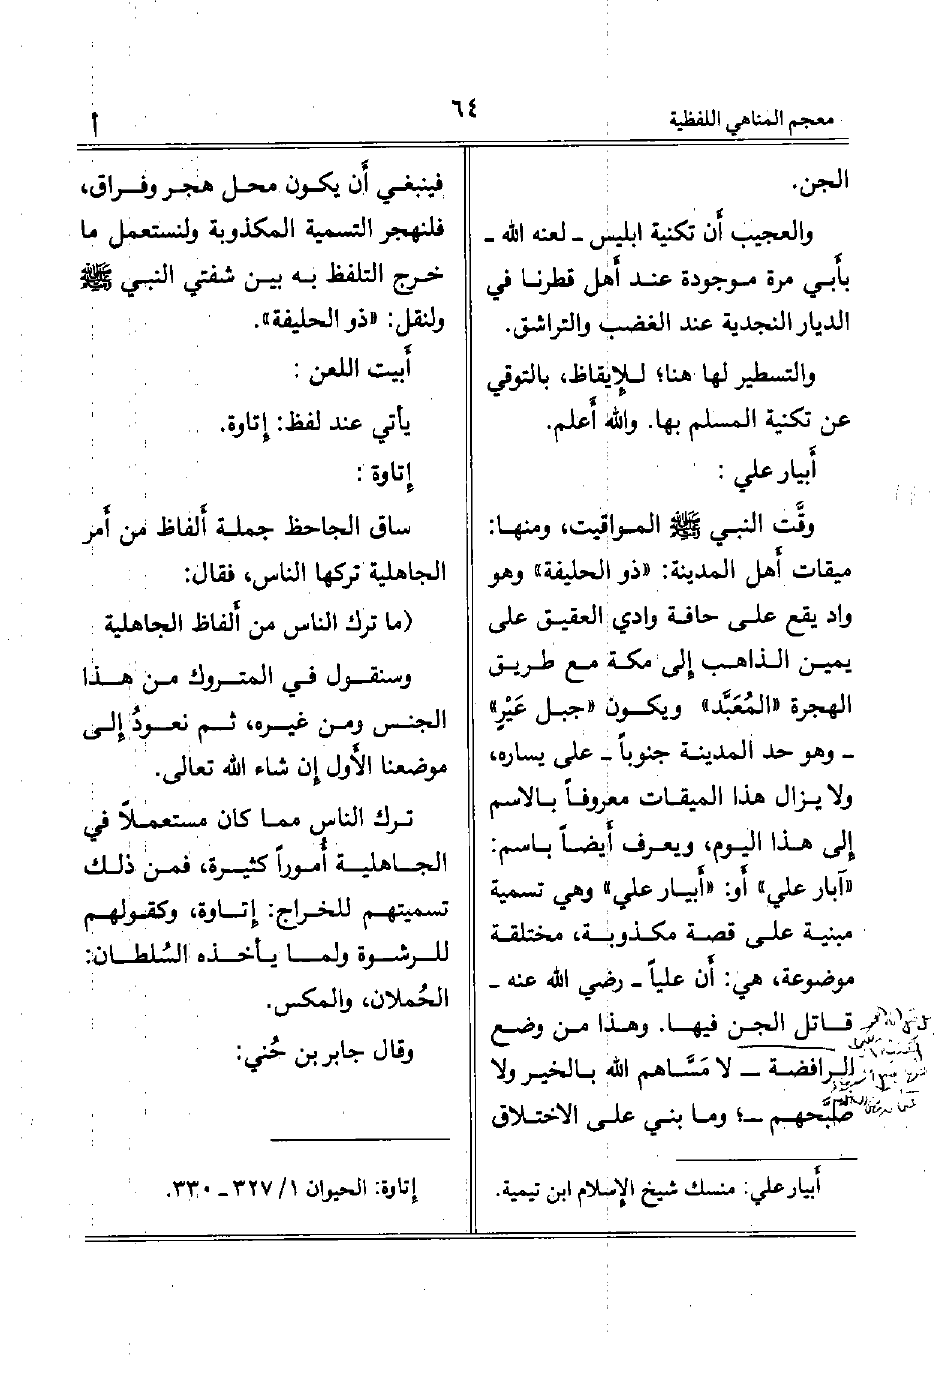 معجم المناهي اللفظية
٦٤
أ
الجن.
والعجيب أن تكنية ابليس ـ لعنه الله ـ
بأبي مرة موجودة عند أهل قطرنا في
الديار النجدية عند الغضب والتراشق.
والتسطير لها هنا؛ للإيقاظ، بالتوقي
عن تكنية المسلم بها. والله أعلم.
أبيار علي :
وقَّت النبي ﷺ المواقيت، ومنها:
ميقات أهل المدينة: «ذو الحليفة» وهو
واد يقع على حافة وادي العقيق على
يمين الذاهب إلى مكة مع طريق
الهجرة «المُعَبَّد» ويكون «جبل عَيْرٍ»
ـ وهو حد المدينة جنوباً ـ على يساره،
ولا يزال هذا الميقات معروفاً بالاسم
إلى هذا اليوم، ويعرف أيضاً باسم:
«آبار علي» أو: «أبيار علي» وهي تسمية
مبنية على قصة مكذوبة، مختلقة
موضوعة، هي: أن علياً ـ رضي الله عنه ـ
قاتل الجن فيها. وهذا من وضع
الرافضة ـ لا مَسَّاهم الله بالخير ولا
صَبَّحهم ـ؛ وما بني على الاختلاق
أبيار علي: منسك شيخ الإسلام ابن تيمية.
فينبغي أن يكون محل هجر وفراق،
فلنهجر التسمية المكذوبة ولنستعمل ما
خرج التلفظ به بين شفتي النبي ﷺ
ولنقل: «ذو الحليفة».
أبيت اللعن :
يأتي عند لفظ: إتاوة.
إتاوة :
ساق الجاحظ جملة ألفاظ من أمر
الجاهلية تركها الناس، فقال:
(ما ترك الناس من ألفاظ الجاهلية
وسنقول في المتروك من هذا
الجنس ومن غيره، ثم نعودُ إلى
موضعنا الأول إن شاء الله تعالى.
ترك الناس مما كان مستعملاً في
الجاهلية أُموراً كثيرة، فمن ذلك
تسميتهم للخراج: إتاوة، وكقولهم
للرشوة ولما يأخذه السُلطان:
الحُملان، والمكس.
وقال جابر بن حُني:
إتاوة: الحيوان ١/ ٣٢٧ ـ ٣٣٠.